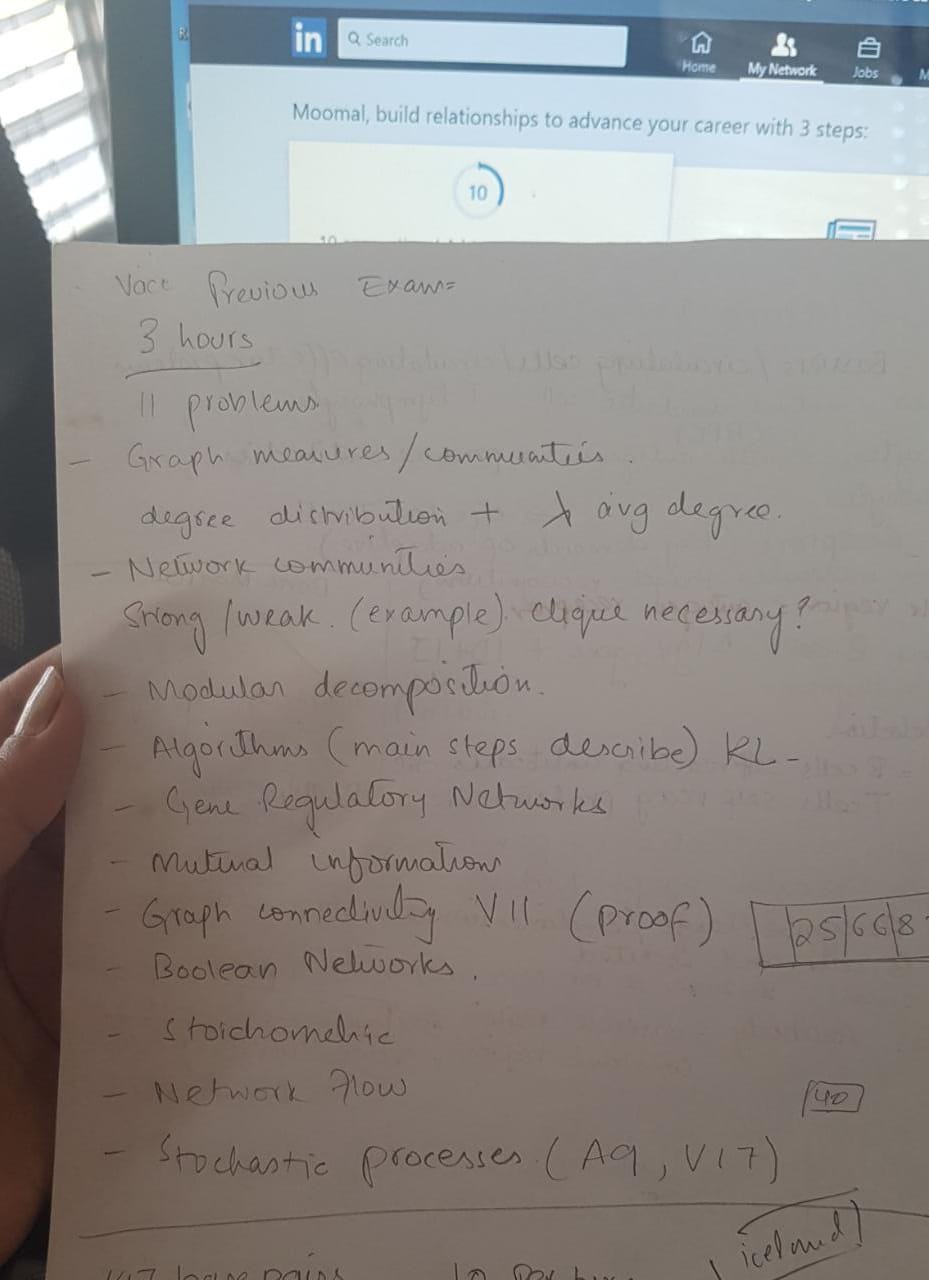 in Search
Home My Network Jobs
Moomal, build relationships to advance your career with 3 steps:
10
10
Previous Exam=
3 hours
11 problems
- Graph measures/communitiis.
degree distribution + λ avg degree.
- Network communities
Strong/weak. (example). clique necessary?
- Modular decomposition.
- Algorithms (main steps describe) KL-
- Gene Regulatory Networks
- Mutual information
- Graph connectivity V11 (proof) 25|66|8
- Boolean Networks.
- Stoichometric
- Network Flow
40
- Stochastic processes. (A9, V17)
iceland